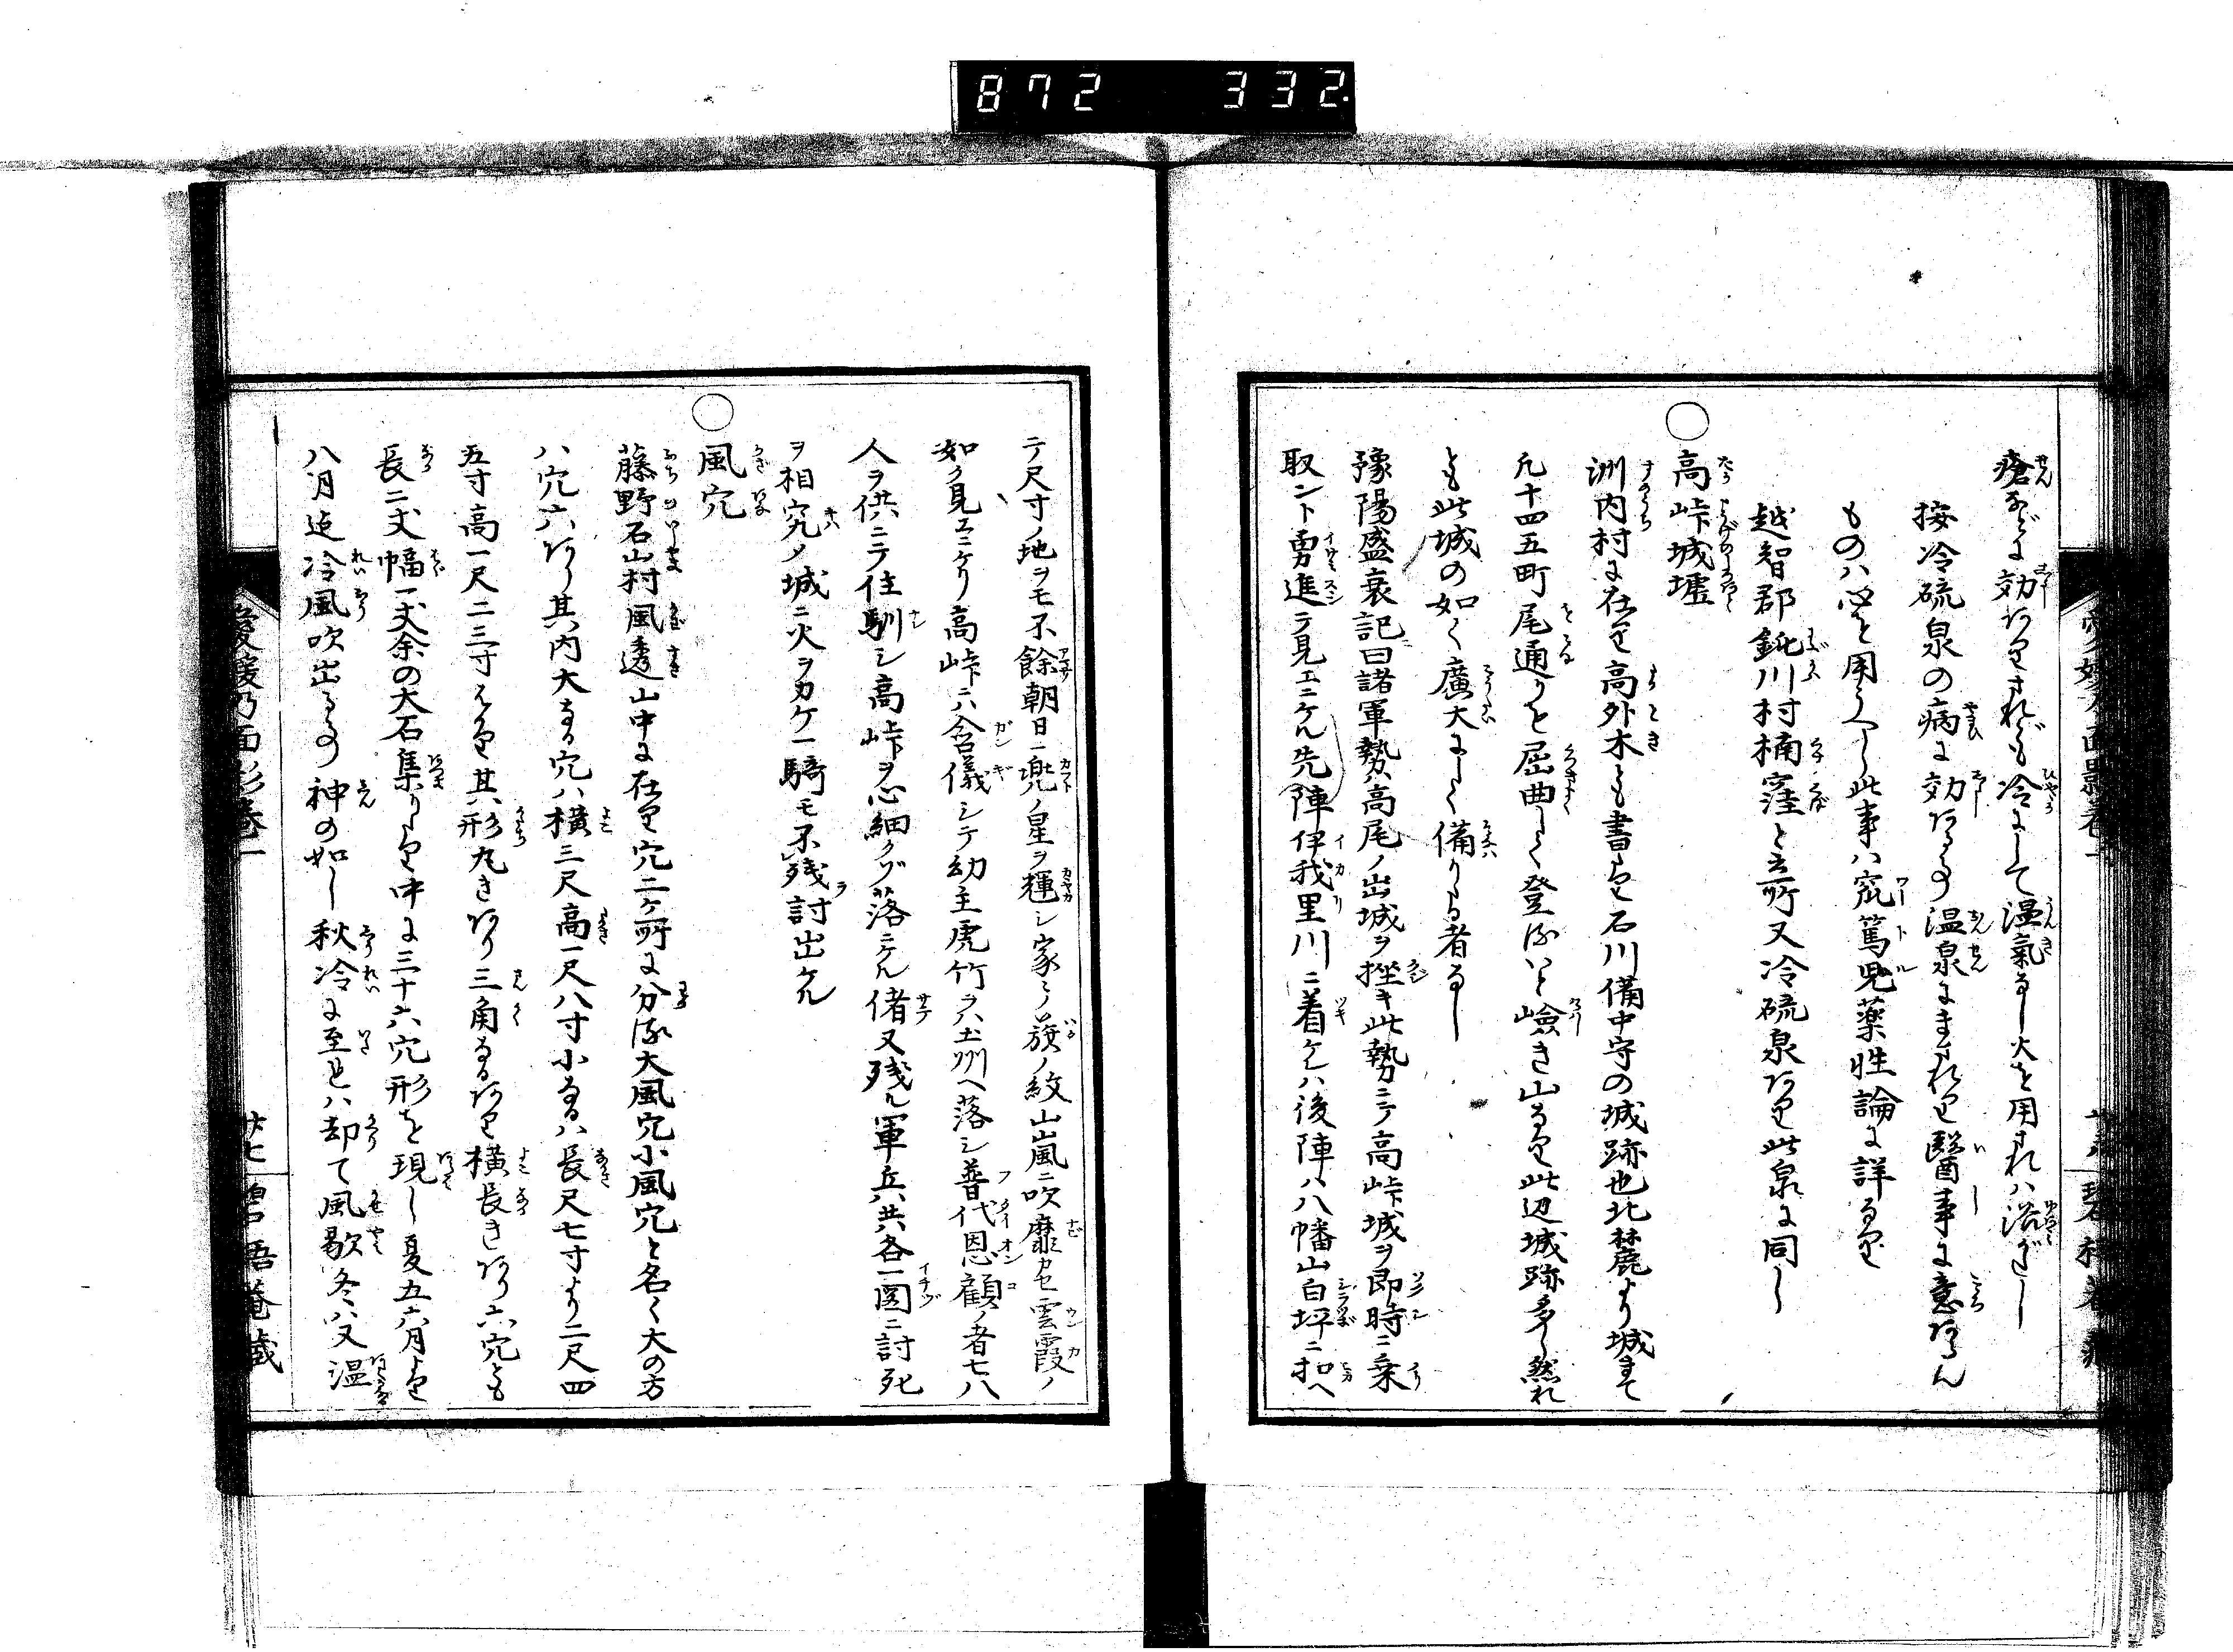 872 332.
瘡などに効ありされども冷にして温氣なし火を用されハ浴がたし
按冷硫泉の病に効あるの温泉にまされり醫事に意あらん
ものハ心を用うへし此事ハ窊篤児薬性論に詳なり
越智郡鈍川村楠窪と云所又冷硫泉あり此泉に同し
○高峠城墟
洲内村に在り高外木とも書せり石川備中守の城跡也北麓より城まて
凡十四五町尾通りを屈曲して登る いと嶮き山なり此辺城跡多し然れ
とも此城の如く廣大にして備りたる者なし
豫陽盛衰記ニ曰諸軍勢ハ高尾ノ出城ヲ挫キ此勢ニテ高峠城ヲ即時ニ乗
取ント勇進テ見エニケル先陣伊我里川ニ着ケレハ後陣ハ八幡山白坪ニ扣ヘ
テ尺寸ノ地ヲモ不餘朝日ニ兜ノ星ヲ輝シ家々ノ旗ノ紋山嵐ニ吹靡カセ雲霞ノ
如ク見エニケリ高峠ニハ含儀シテ幼主虎竹ヲハ土州ヘ落シ普代恩顧ノ者七八
人ヲ供ニテ住馴シ高峠ヲ心細クゾ落ニケル偖又残ル軍兵共各一図ニ討死
ヲ相究メ城ニ火ヲカケ一騎モ不残討出ケル
○風穴
藤野石山村風透山中に在り穴二ケ所に分る大風穴小風穴と名く大の方
ハ穴六あり其内大なる穴ハ横三尺高一尺八寸小なるハ長尺七寸より二尺四
五寸高一尺二三寸はかり其形丸きあり三角なるあり横長きあり六穴とも
長二丈幅一丈余の大石集りたり中に三十六穴形を現し夏五六月より
八月迄冷風吹出るの神の如し秋冷に至れハ却て風歇冬ハ又温
愛媛乃面影巻一
廿七
碧梧菴蔵